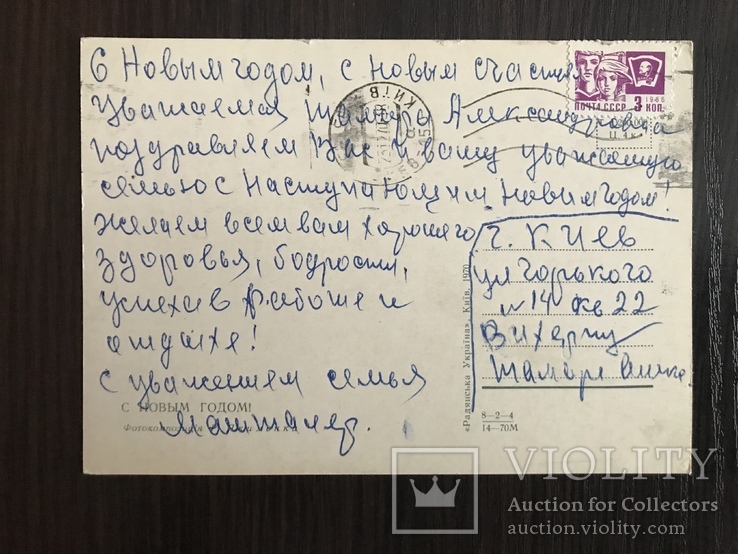 С Новым годом, с новым счастьем
Уважаемая Тамара Александровна
поздравляем Вас и вашу уважаемую
семью с Наступающим новым годом!
желаем всем вам хорошего
здоровья, бодрости,
успехов в работе и
отдыхе!
с уважением семья
г. Киев
ул Горького
н 14 кв 22
Вихерту
Тамаре
С НОВЫМ ГОДОМ!
Фотокомпозиция
«Радянська Україна», Київ, 1970.
8–2–4
14–70М
ПОЧТА СССР
1966
3 КОП.
КИЇВ
VIOLITY
Auction for Collectors
auction.violity.com